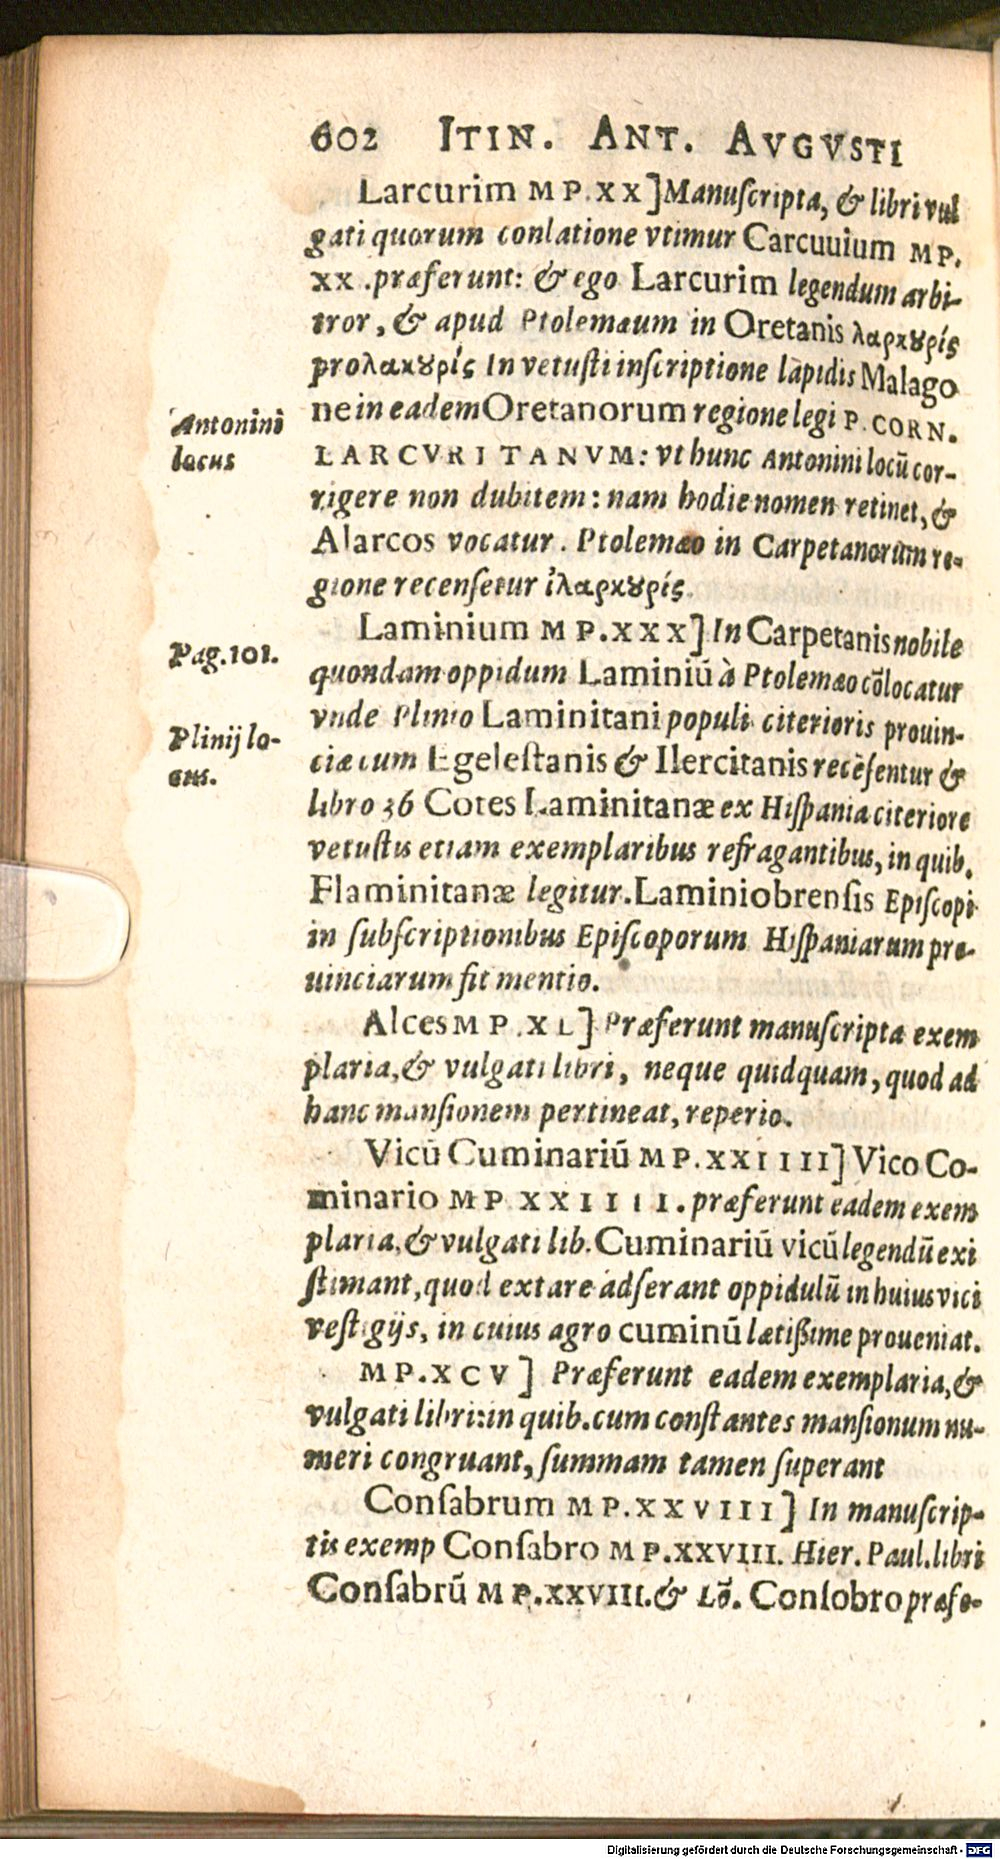 602 ITIN. ANT. AVGVSTI
Larcurim MP.XX] Manuſcripta, & libri vul
gati quorum conlatione vtimur Carcuuium MP.
XX. præferunt: & ego Larcurim legendum arbi-
tror, & apud Ptolemæum in Oretanis λαρκȣρίς
pro λακȣρίς In vetuſti inſcriptione lapidis Malago
ne in eadem Oretanorum regione legi P. CORN.
Antonini
locus
LARCVRITANVM: vt hunc Antonini locū cor-
rigere non dubitem: nam hodie nomen retinet, &
Alarcos vocatur. Ptolemæo in Carpetanorum re-
gione recenſetur ἰλαρκȣρίς.
Laminium MP.XXX] In Carpetanis nobile
Pag.101.
quondam oppidum Laminiū à Ptolemæo cōlocatur
vnde Plinio Laminitani populi citerioris prouin-
Plinij lo-
cus.
ciæ cum Egeleſtanis & Ilercitanis recēſentur &
libro 36 Cotes Laminitanæ ex Hiſpania citeriore
vetuſtis etiam exemplaribus refragantibus, in quib.
Flaminitanæ legitur. Laminiobrenſis Epiſcopi
in ſubſcriptionibus Epiſcoporum Hiſpaniarum pro-
uinciarum fit mentio.
Alces MP.XL] Præferunt manuſcripta exem
plaria, & vulgati libri, neque quidquam, quod ad
hanc manſionem pertineat, reperio.
Vicū Cuminariū MP.XXIIII] Vico Co-
minario MP XXIIII. præferunt eadem exem
plaria, & vulgati lib. Cuminariū vicū legendū exi
ſtimant, quod extare adſerant oppidulū in huius vici
veſtigijs, in cuius agro cuminū lætißime proueniat.
MP.XCV] Præferunt eadem exemplaria, &
vulgati libri: in quib. cum conſtantes manſionum nu-
meri congruant, ſummam tamen ſuperant
Conſabrum MP.XXVIII] In manuſcrip-
tis exemp Conſabro MP.XXVIII. Hier. Paul. libri
Conſabrū MP.XXVIII. & Lō. Conſobro præfe-
Digitalisierung gefördert durch die Deutsche Forschungsgemeinschaft - DFG